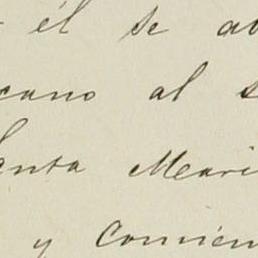 él se ab
cano al s
anta Marí
y Convien